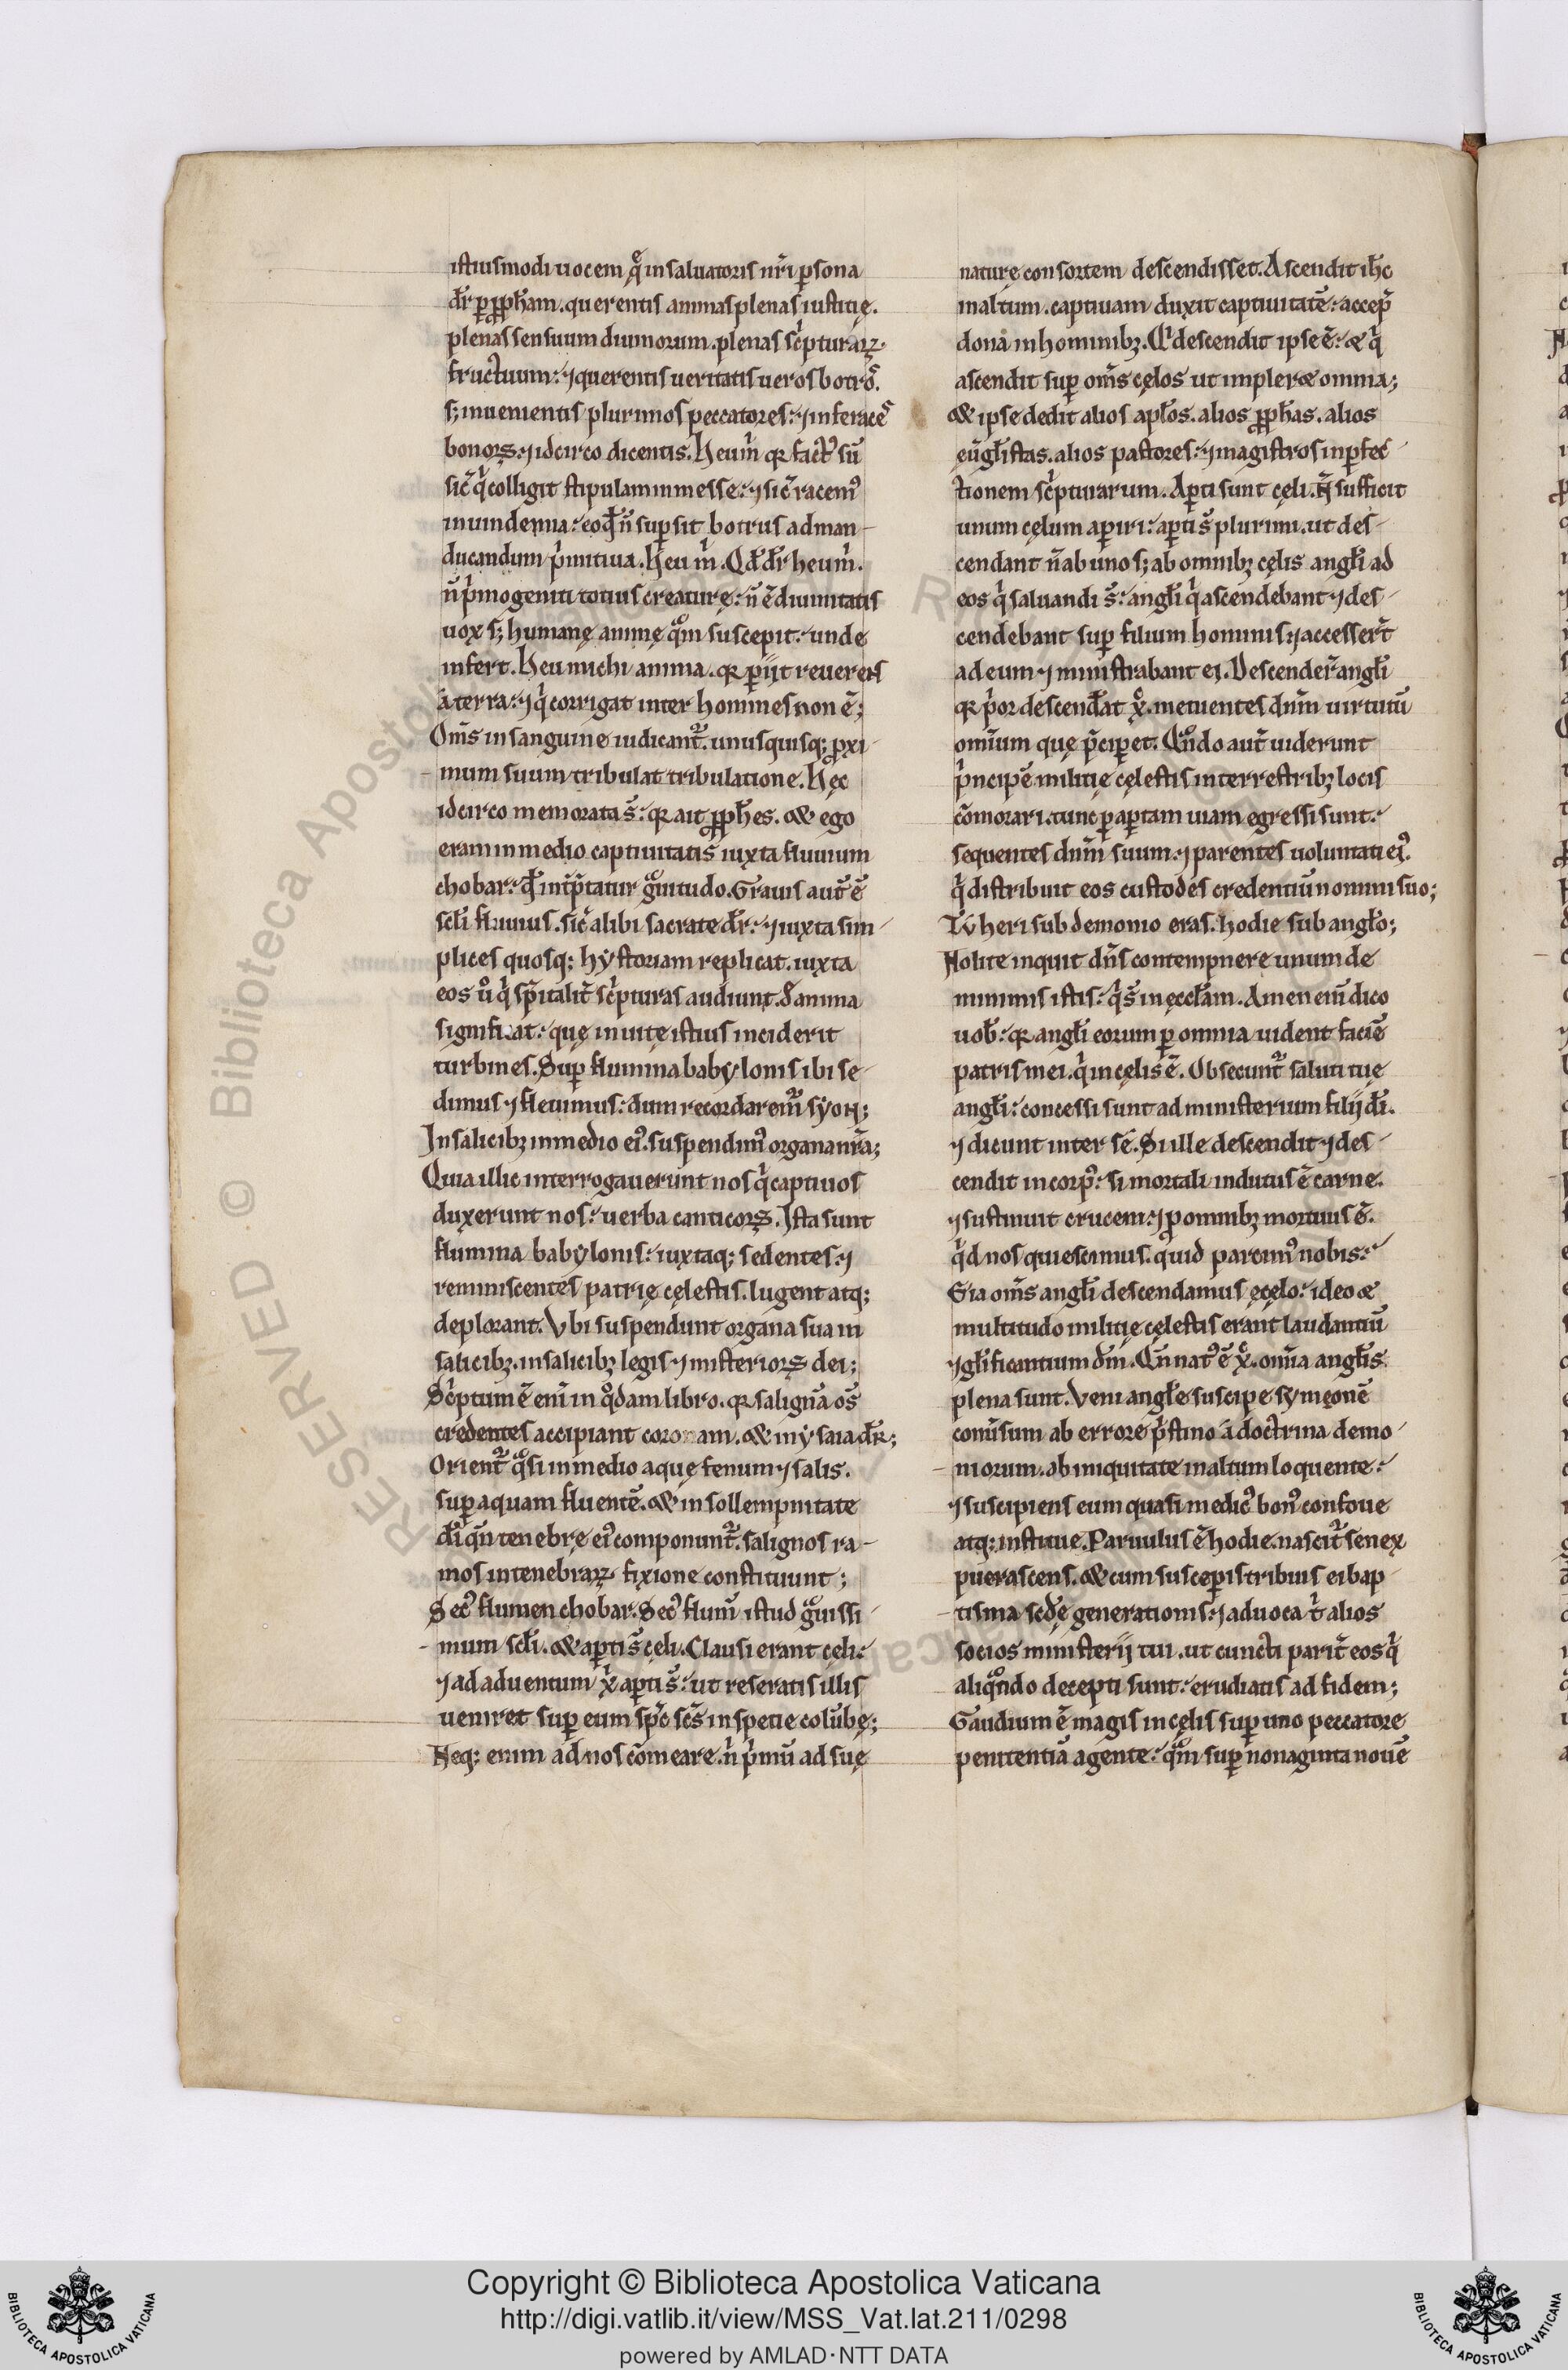 istiusmodi uocem q̊ in saluatoris nr̄i ꝑsona
dr̄ ꝑ ꝓph̄am. querentis animas plenas iustitię.
plenas sensuum diuinorum. plenas sc̓pturaꝝ.
fructuum: ⁊ querentis ueritatis ueros botro᷒.
s; inuenientis plurimos peccatores: ⁊ inferace᷒
bonoꝝ. ⁊ idcirco dicentis. Heu m̓ qꝛ fact᷒ sū
sic̄ q̓ colligit stipulam in messe: ⁊ sic̄ racem᷒
in uindemia: eo qđ n̄ suꝑsit botrus ad man-
ducandum p̓mitiua. Heu m̓. Qđ dr̄ heu m̓.
n̄ p̓mogeniti totius creaturę: n̄ ē diuinitatis
uox s; humanę animę q̊m suscepit: unde
infert. Heu michi anima. qꝛ ꝑiit reuerens
a terra: ⁊ q̓ corrigat inter homines non ē;
Om̄s in sanguine iudicant᷑. unusquisq; ꝓxi-
mum suum tribulat tribulatione. Hęc
idcirco memorata s̄: qꝛ ait ꝓph̄es. & ego
eram in medio captiuitatis iuxta fluuium
chobar: qđ int̄p̄tatur g̊uitudo. Grauis aut̄ ē
scl̄i fluuius. sic̄ alibi sacrate dr̄: ⁊ iuxta sim-
plices quosq; hystoriam replicat. iuxta
eos u̇ q̓ sp̄italit̄ sc̓pturas audiunt. anima
significat: quę in uitę istius inciderit
turbines. Suꝑ flumina babylonis ibi se-
dimus ⁊ fleuimus: dum recordarem᷑ syon;
In salicibꝫ in medio ei᷒. suspendim᷒ organa nr̄a;
Quia illic interrogauerunt nos q̓ captiuos
duxerunt nos: uerba canticoꝝ. Ista sunt
flumina babylonis: iuxta q; sedentes: ⁊
reminiscentes patrię cęlestis. lugent atq;
deplorant. Vbi suspendunt organa sua in
salicibꝫ. in salicibꝫ legis ⁊ misterioꝝ dei;
Sc̓ptum ē eni̅ in q̊dam libro. qꝛ salignā os̄
credentes accipiant coronam. & in ysaia dr̄;
Orient᷑ q̊si in medio aquę fenum ⁊ salis.
suꝑ aquam fluentē. & in sollempnitate
dī qn̄ tenebrę ei᷒ componunt᷑. salignos ra-
mos in tenebraꝝ fixione constituunt;
Sec᷒ flumen chobar. Sec᷒ flum̄ istud g̊uissi-
mum scl̄i. & aꝑti s̄ cęli. Clausi erant cęli:
⁊ ad aduentum x̓ aꝑti s̄: ut reseratis illis
ueniret suꝑ eum sp̄c sc̄s in spetie colūbę;
Neq; enim ad nos cōmeare. n̓ p̓mū ad suę
naturę consortem descendisset. Ascendit ih̄c
in altum. captiuam duxit captiuitatē: accep̄
dona in hominibꝫ. Q̓ descendit ipse ē: & q̓
ascendit suꝑ om̄s cęlos ut impleret omnia;
& ipse dedit alios apl̄os. alios ꝓph̄as. alios
eugl̄istas. alios pastores: ⁊ magistros in ꝑfec-
tionem sc̓pturarum. Aꝑti sunt cęli. N̄ sufficit
unum cęlum aperiri: aꝑti s̄ plurimi. ut des-
cendant n̄ ab uno s; ab omnibꝫ cęlis angl̄i ad
eos q̓ saluandi s̄: angl̄i q̓ ascendebant ⁊ des-
cendebant suꝑ filium hominis: ⁊ accessert̄
ad eum ⁊ ministrabant ei. Descender̄ angl̄i
qꝛ p̓or descendāt x̊. metuentes dn̄m uirtutū
omīum quę p̄ciꝑet. Qn̊do aut̄ uiderunt
p̓ncipē militię cęlestis in terrestribꝫ locis
cōmorari. tunc ꝑ aꝑtam uiam egressi sunt:
sequentes dn̄m suum: ⁊ parentes uoluntati ei᷒.
q̓ distribuit eos custodes credentiū nomini suo;
Tu heri sub demonio eras. hodie sub angl̄o;
Nolite inquit dn̄s contempnere unum de
minimis istis: q̓ s̄ in ęccl̄am. Amen eni̅ dico
uob̄: qꝛ angl̄i eorum ꝑ omnia uident faciē
patris mei. q̓ in cęlis ē. Obsecunt᷑ saluti tuę
angl̄i: concessi sunt ad ministerium filii dī.
⁊ dicunt inter se. Si ille descendit ⁊ des-
cendit in corp᷒: si mortali indutus ē carne.
⁊ sustinuit crucem: ⁊ ꝓ omnibꝫ mortuus ē.
q̓d nos quiescimus. quid parcim᷒ nobis:
Eia om̄s angl̄i descendamus ęcęlo: ideo &
multitudo militię cęlestis erant laudantiū
⁊ gl̄ificantium dm̄. Qn̄ nat᷒ ē x̊. omīa angl̄is
plena sunt. Veni angl̄e suscipe symeonē
conūsum ab errore p̓stino a doctrina demo-
niorum. ab iniquitate in altum loquente:
⁊ suscipiens eum quasi medic᷒ bon᷒ confoue
atq; institue. Paruulus ē hodie. nascit᷑ senex
puerascens. & cum susceperis tribuis ei bap-
tisma scd̄e generationis: ⁊ aduoca t̓ alios
socios ministerii tui. ut cuncti parit̄ eos q̓
aliq̊ndo decepti sunt: erudiatis ad fidem;
Gaudium ē magis in cęlis suꝑ uno peccatore
penitentiā agente: q̊m suꝑ nonaginta nouē
RESERVED © Biblioteca Aposto
Copyright © Biblioteca Apostolica Vaticana
http://digi.vatlib.it/view/MSS_Vat.lat.211/0298
powered by AMLAD·NTT DATA
BIBLIOTECA APOSTOLICA VATICANA
BIBLIOTECA APOSTOLICA VATICANA